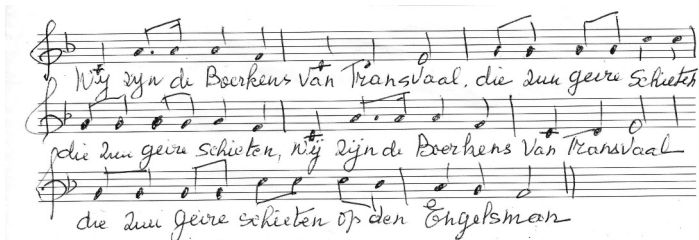 Wij zijn de Boerkens van Transvaal, die zuu geire schieten
die zuu geire schieten, wij zijn de Boerkens van Transvaal
die zuu geire schieten op den Engelsman